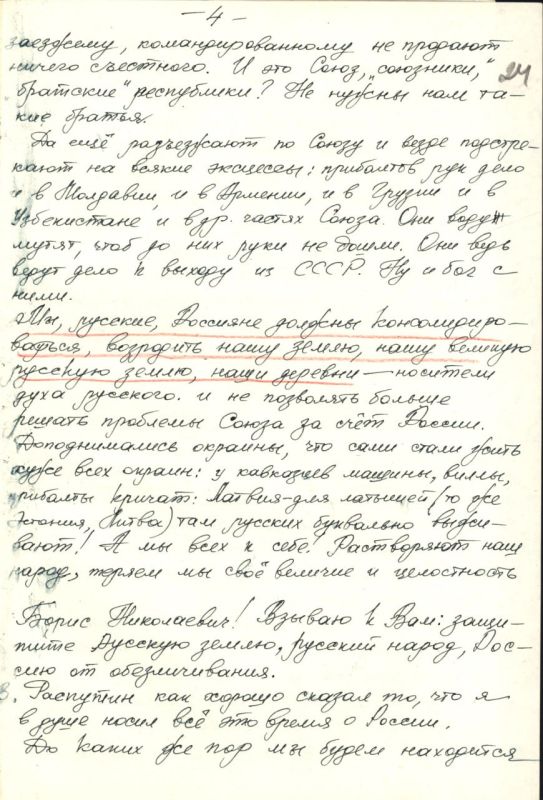 — 4 —
24
заезжему, командированному не продают
ничего съестного. И это Союз, „союзники,"
братские" республики? Не нужны нам та-
кие братья.
Да ещё разъезжают по Союзу и везде подстре-
кают на всякие эксцессы: прибалтов рук дело
и в Молдавии, и в Армении, и в Грузии и в
Узбекистане и в др. частях Союза. Они воду
мутят, чтоб до них руки не дошли. Они ведь
ведут дело к выходу из СССР. Ну и бог с
ними.
Мы, русские, Россияне должны консолидиро-
ваться, возродить нашу землю, нашу великую
русскую землю, наши деревни — носители
духа русского. и не позволять больше
решать проблемы Союза за счёт России.
Доподнимались окраины, что сами стали жить
хуже всех окраин: у кавказцев машины, виллы,
прибалты кричат: Латвия-для латышей (то же
Эстония, Литва) там русских буквально выжи-
вают! А мы всех к себе! Растворяют наш
народ, теряем мы своё величие и целостность
Борис Николаевич! Взываю к Вам: защи-
тите Русскую землю, русский народ, Рос-
сию от обезличивания.
В. Распутин как хорошо сказал то, что я
в душе носил всё это время о России.
До каких же пор мы будем находится